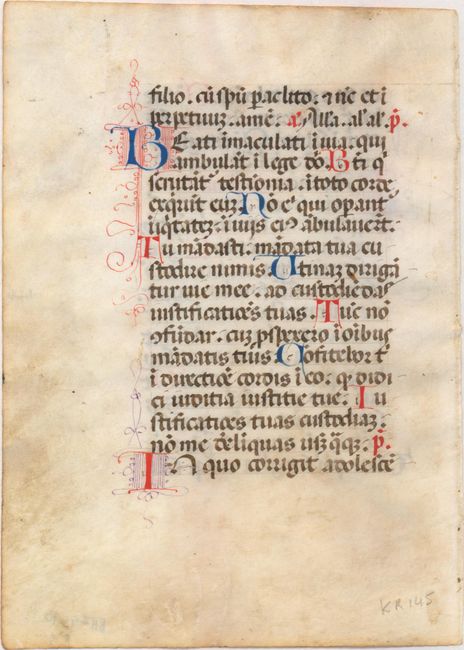 filio. cū spū paclito. ⁊ nc̄ et ī
ppetuuz. amē. a᷒. Alla. al̓ al̓. p̄.
BEati īmaculati ī uia. qui
ambulāt ī lege dō. Bti q̓
scrutāt testīonia. ī toto corde
exqrūt euz. Nō e᷒ qui opant̄
iīq̇tatez. ī uijs eī᷒ ābulauert̄.
Tu mādasti. mādata tua cu
stodire nimis. Utinaz dirigā
tur uie mee. ad custodiēdas
iustificatiōes tuas. Tūc nō
ꝯfūdar. cuz pspexero ī oībus
mādatis tuis. Cōfitebor t̓
ī directiōe cordis ī eo. ꝙ didi
ci iuditia iustitie tue. Iu
stificatiōes tuas custodiaz.
nō me deliquas usqz q̇qz. p̄.
IN quo corrigit adolescē
KR 145